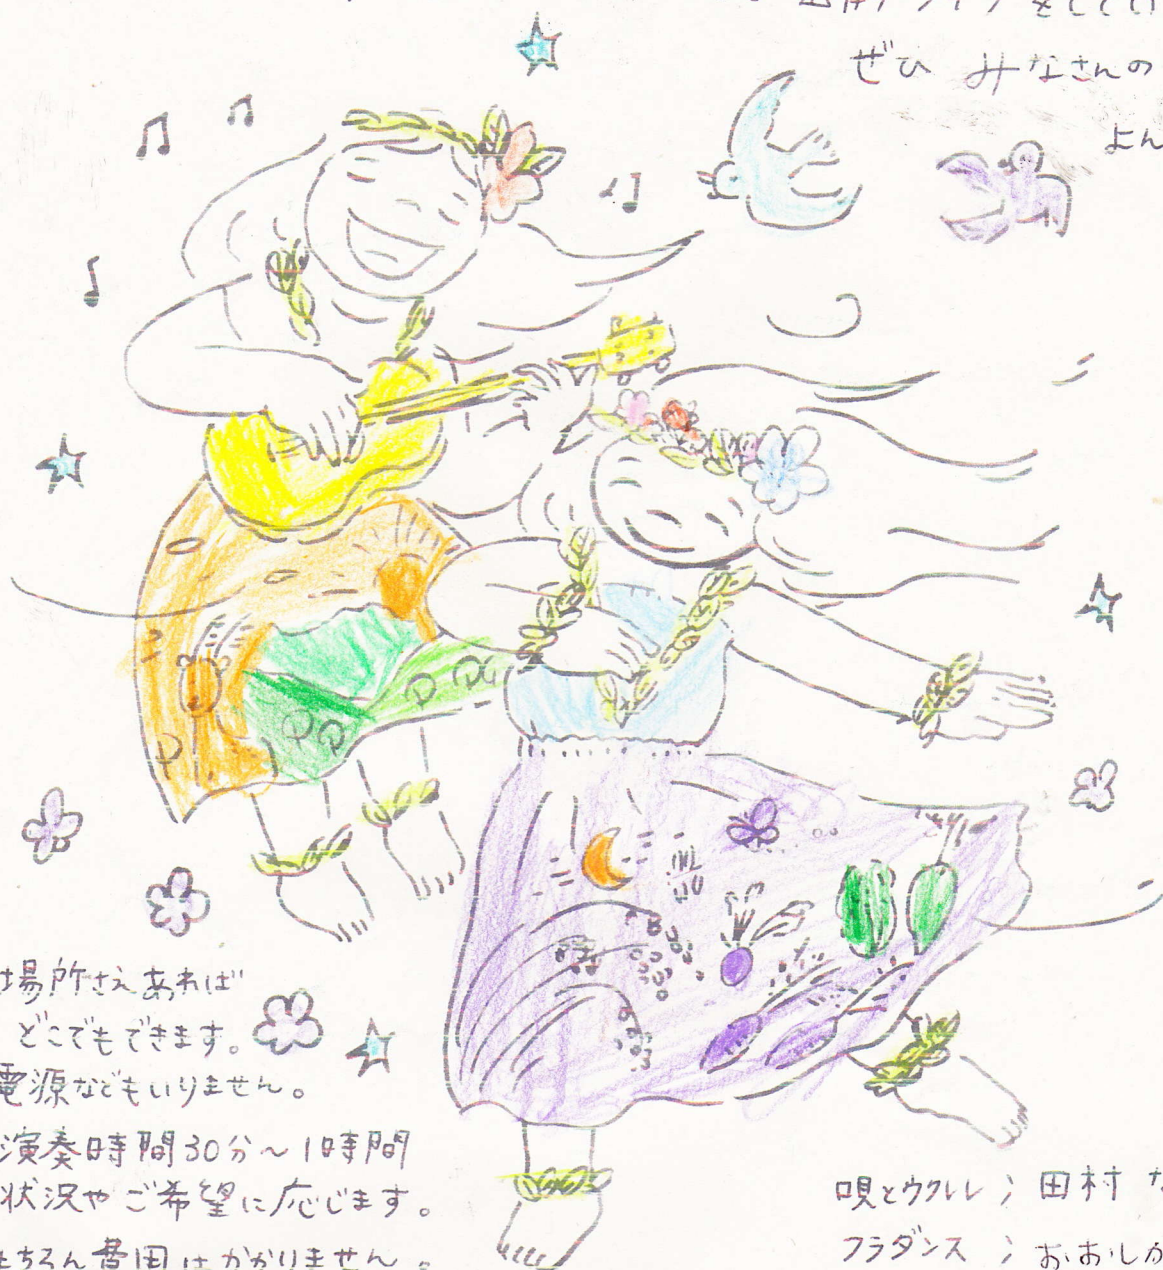 をしてい
ぜひ みなさんの
よん
場所さえあれば
どこでもできます。
電源などもいりません。
演奏時間30分～1時間
状況やご希望に応じます。
もちろん費用はかかりません。
唄とウクレレ ; 田村 な
フラダンス ; おおしか